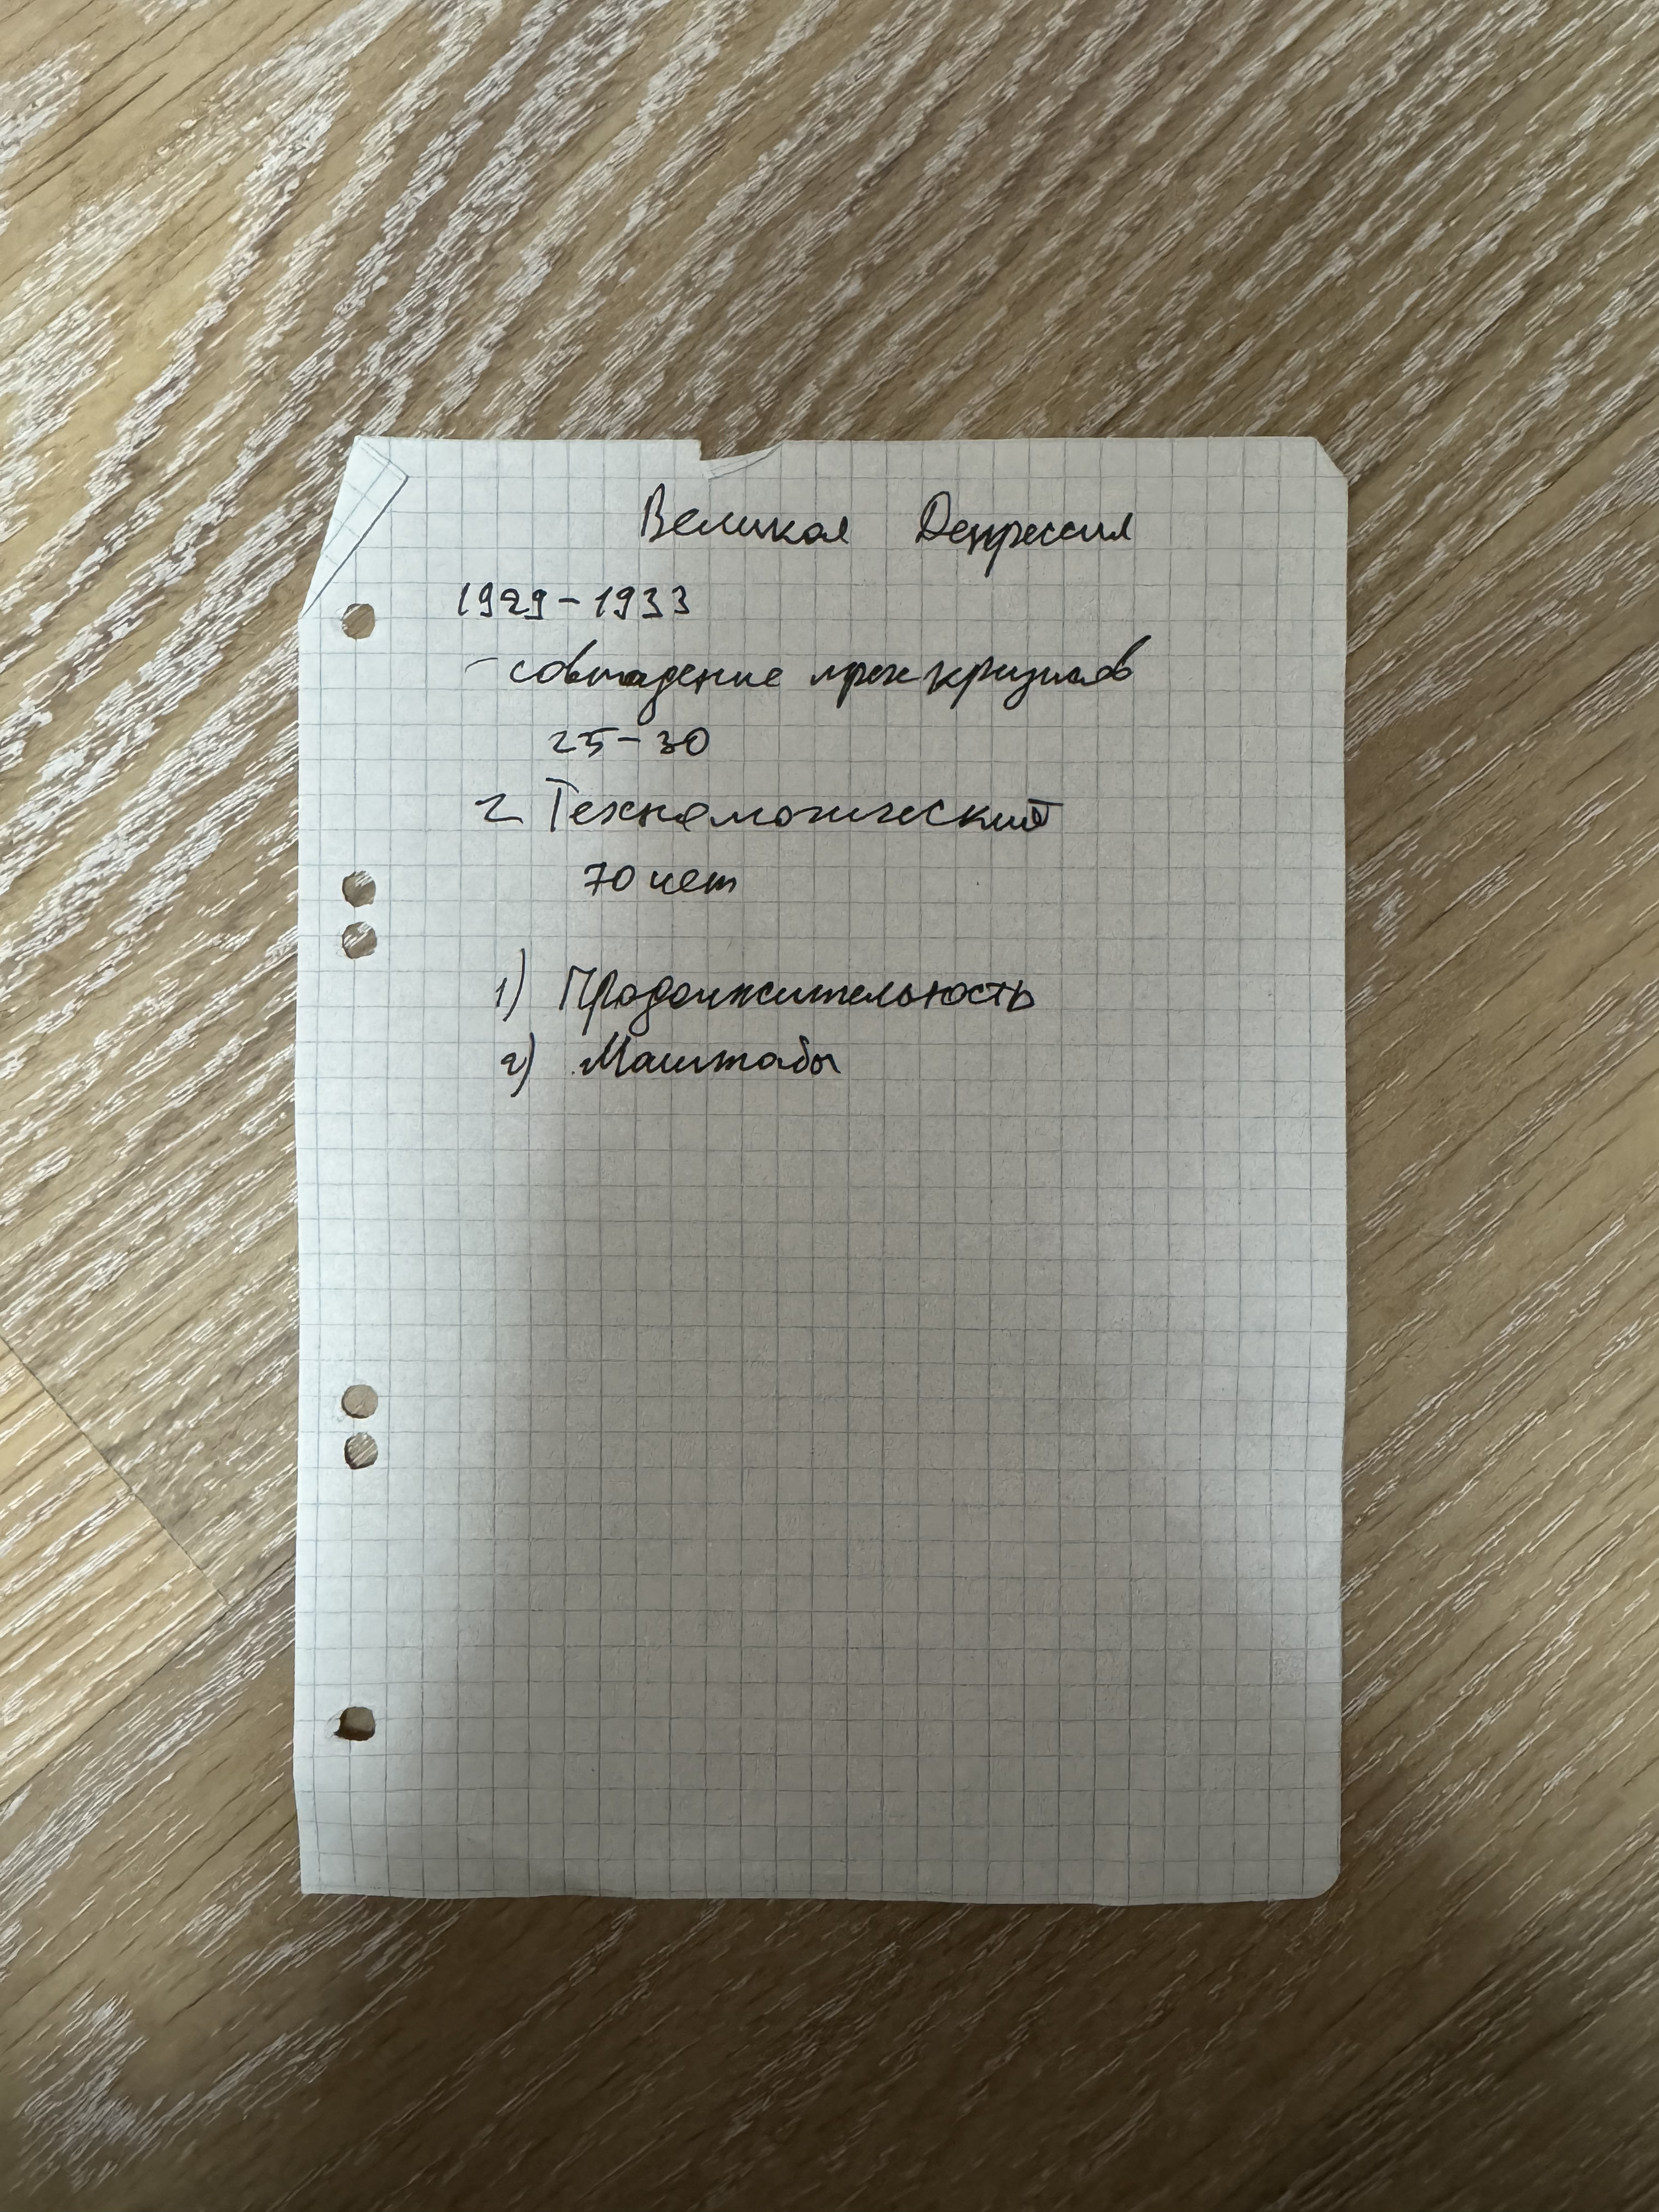 Великая Депрессия
1929-1933
- совпадение трех кризисов
25-30
2 Технологический
70 лет
1) Продолжительность
2) Маштабы